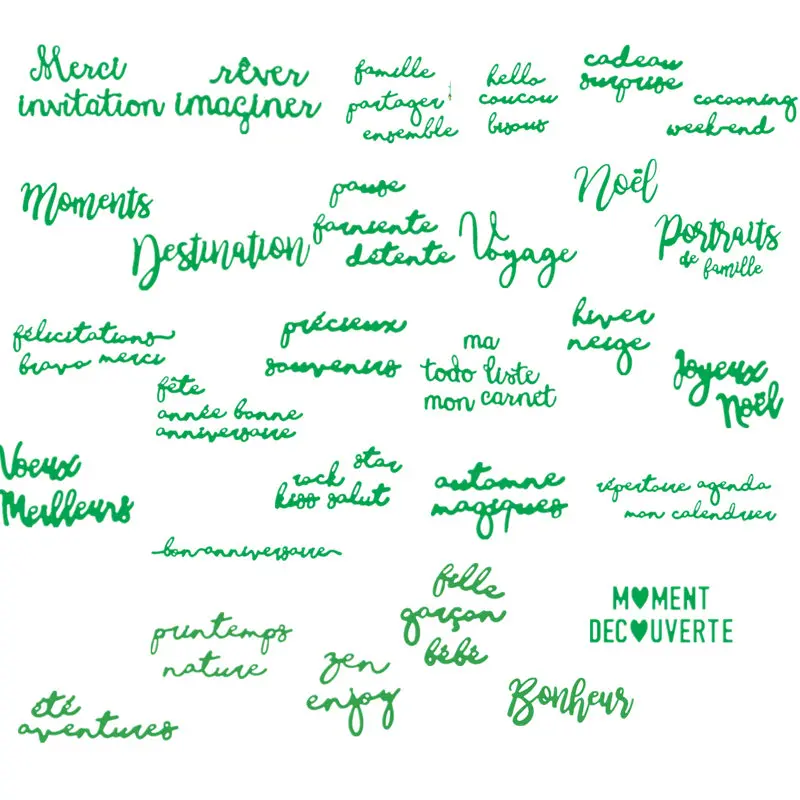 Merci
invitation
rêver
imaginer
famille
partager
ensemble
hello
coucou
bisous
cadeau
surprise
cocooning
week-end
Moments
Destination
pause
farniente
détente
Voyage
Noël
Portraits
de famille
félicitations
bravo merci
fête
année bonne
anniversaire
précieux
souvenirs
ma
todo liste
mon carnet
hiver
neige
Joyeux
Noël
Voeux
Meilleurs
star
rock
kiss salut
automne
magiques
répertoire agenda
mon calendrier
bon anniversaire
fille
garçon
bébé
M♥MENT
DEC♥UVERTE
printemps
nature
zen
enjoy
Bonheur
été
aventures